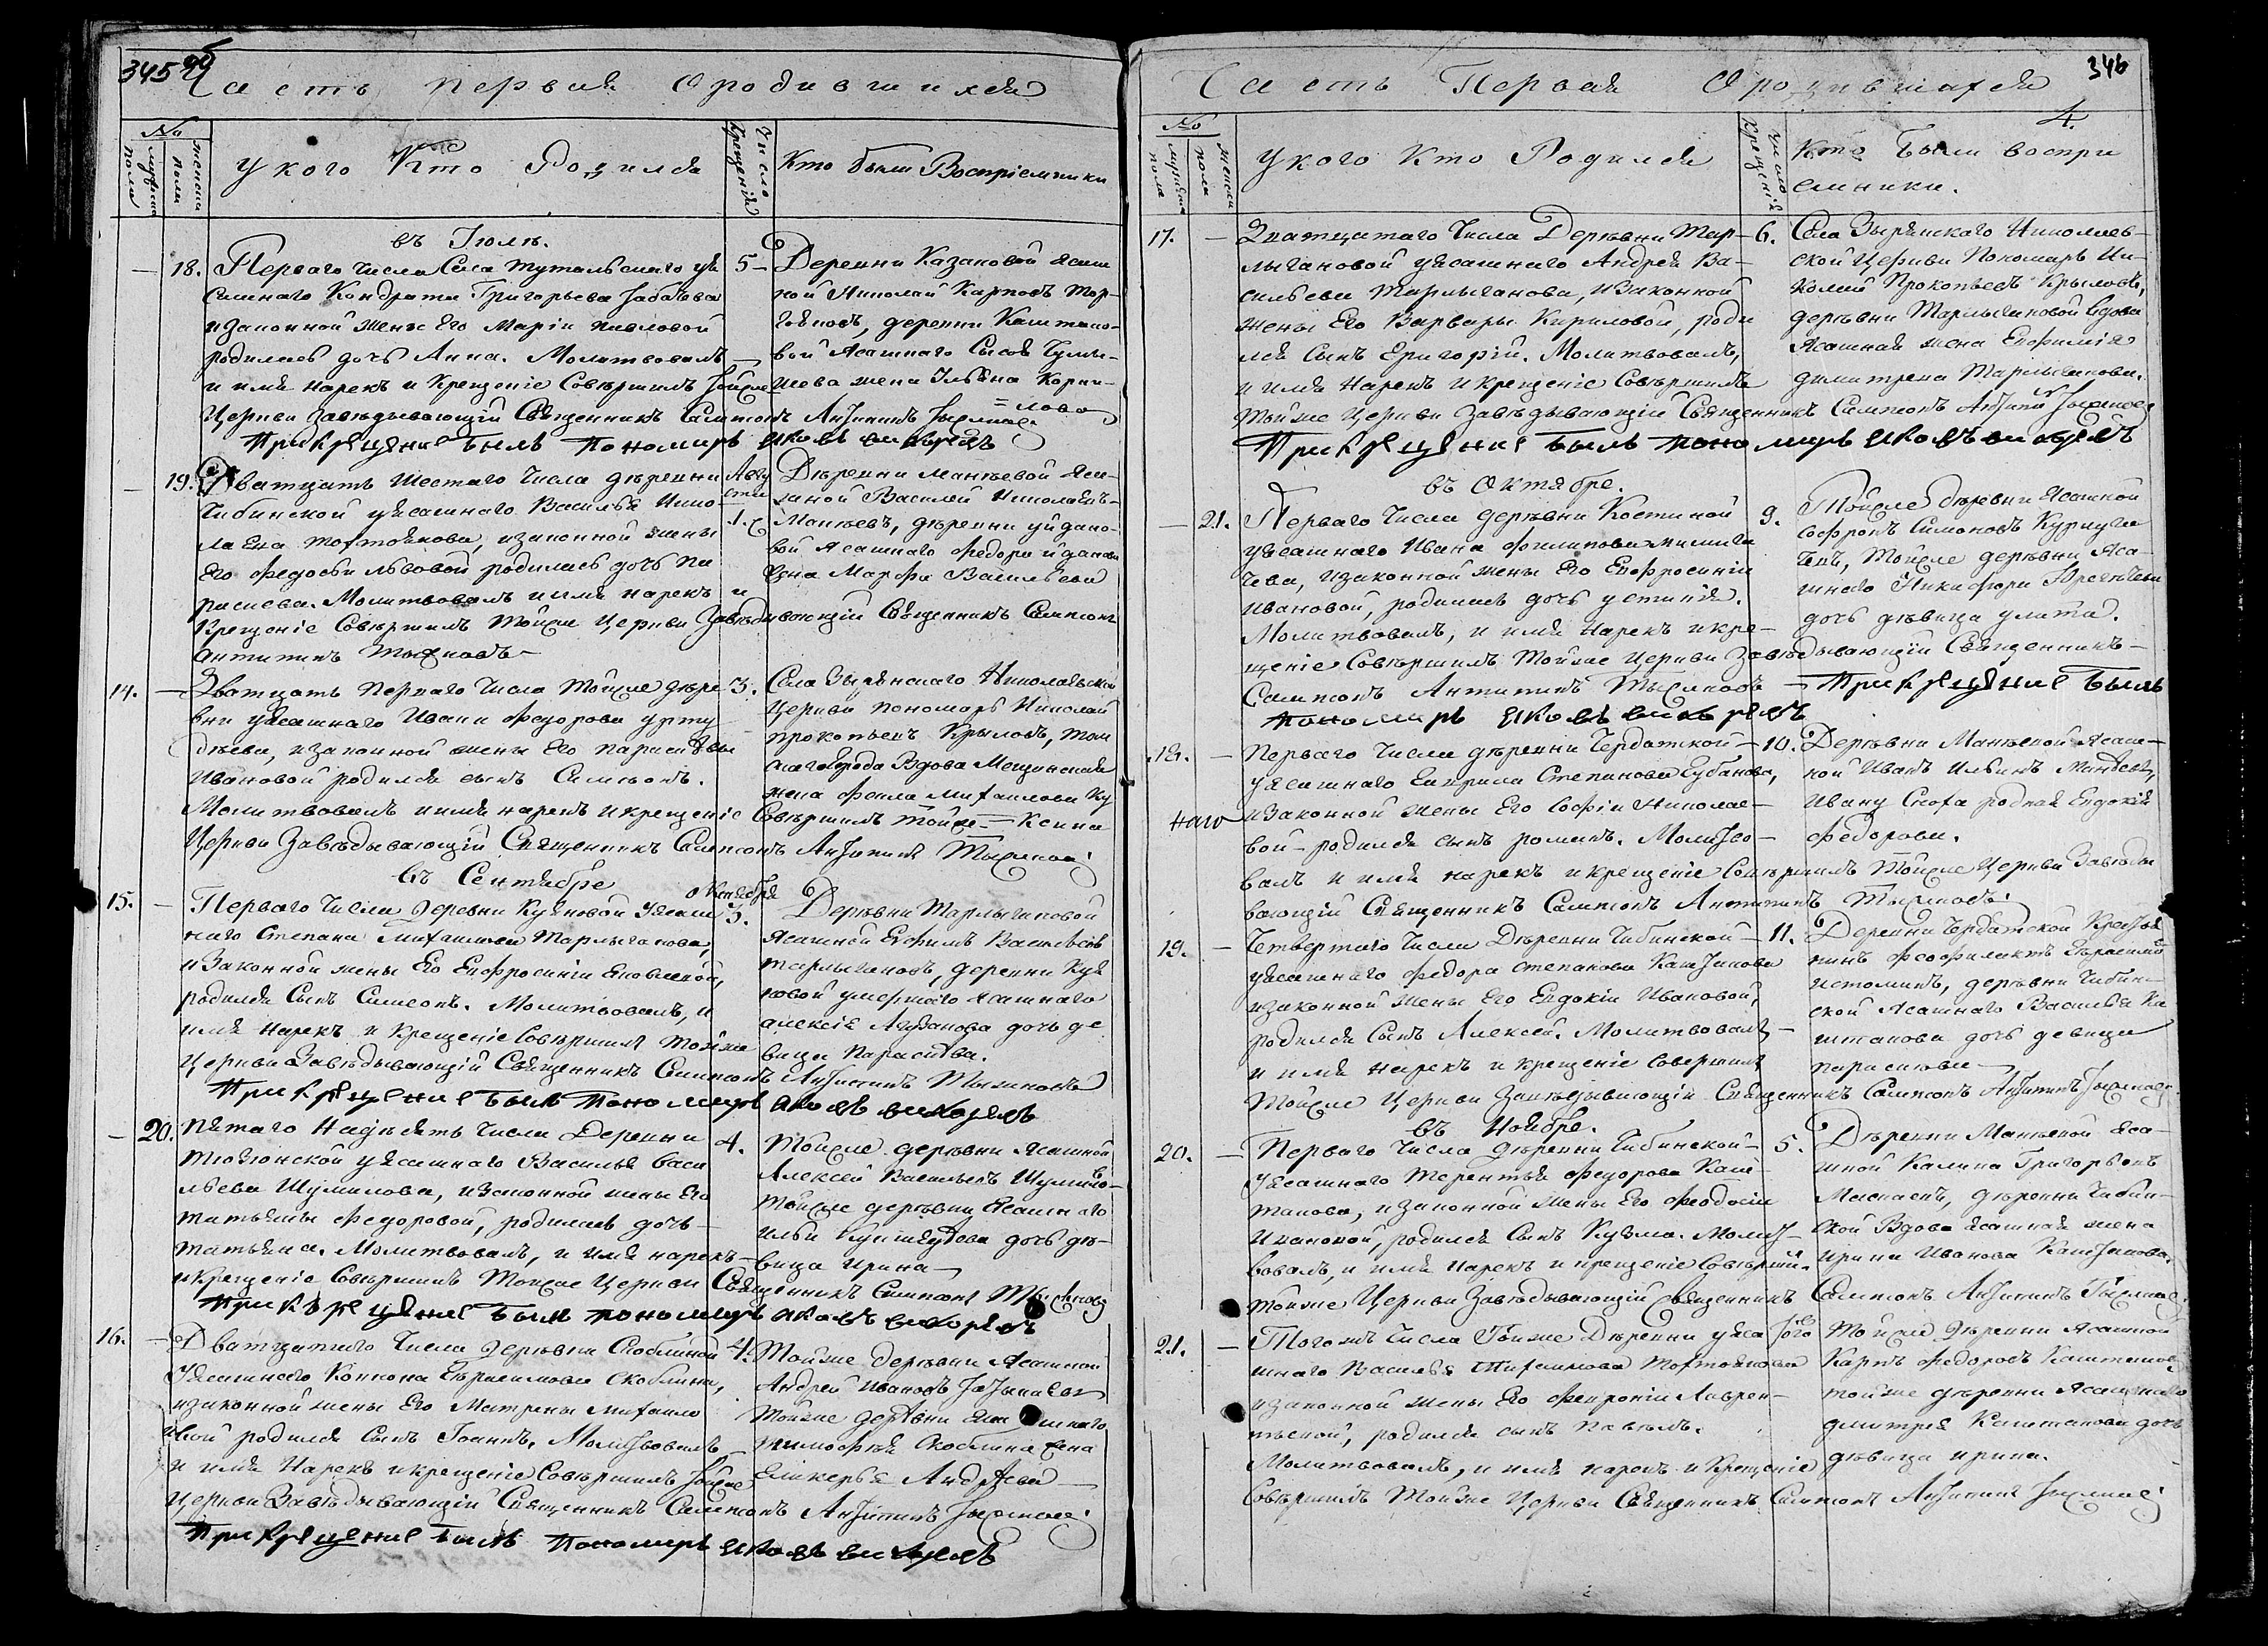 345 об
Часть первая о родившихся
№
мужеска пола
женска пола
У кого Кто Родился
Число Крещенія
Кто были Воспріемники
въ Іюлѣ.
18. Перваго числа Села Тутальскаго уя
сашнаго Кондрата Григорьева
и законной жены Его Маріи Павловой
родилась дочь Анна. Молитвовалъ
и имя нарекъ и Крещеніе Совершилъ тойже
Церкви завѣдывающій Священникъ Сампсонъ Антипинъ Тыжновъ
При крещение былъ Пономарь
5 Деревни Казановой Ясаш
ной Николай Карповъ
деревни Каштано-
вой Ясашнаго
жена Ульяна Корни-
лова
19. Дватцать шестаго числа деревни
Чибинской уясашнаго Василья Нико-
лаева Тохтонкова, изаконной жены
Его Федосьи Львовой родилась дочь Па
расковья. Молитвовалъ и имя нарекъ и
Крещеніе Совершилъ Тойже Церкви Завѣдывающій Священникъ Сампсонъ
Антипинъ Тыжновъ
Авгу
ста
1.
Деревни Манѣевой Яса
шной Василей Николаевъ
Манѣевъ, деревни Уйдано-
вой Ясашнаго Федора Уйданова
жена Марфа Васильева
14. Дватцать перваго числа Тойже дере
вни уясашнаго Ивана Федорова Урту
дѣева, изаконной жены Его Парасковьи
Ивановой родился сынъ Симеонъ.
Молитвовалъ и имя нарекъ и крещеніе Совершилъ Тойже
Церкви Завѣдывающій Священникъ Сампсонъ Антипинъ Тыжновъ
3. Села Зырянскаго Николаевской
Церкви пономарь Николай
Прокопьевъ Крыловъ, Том
скаго города Вдова Мещанская
жена Фекла Михаилова Ку
ксина
въ Сентябре
15. Перваго числа Деревни Куяновой Уясаш
наго Степана Михаилова Тарлыганова,
изаконной жены Его Евфросиніи Яковлевой,
родился Сынъ Симеонъ. Молитвовалъ, и
имя нарекъ и Крещеніе Совершилъ Тойже
Церкви Завѣдывающій Священникъ Сампсонъ Антипинъ Тыжновъ
При крещение былъ Пономарь
октября
3.
Деревни Тарлыгановой
Ясашной Ефимъ Васильевъ
Тарлыгановъ, деревни Куя
новой умершаго Ясашнаго
Алексія дочь де
вица Параскева.
20. Пятаго Надесять числа Деревни
уясашнаго Василья Васи
льева Шумилова, изаконной жены Его
Татьяны Федоровой, родилась дочь
Татьяна. Молитвовалъ, и имя нарекъ
и крещеніе Совершилъ Тойже Церкви Священникъ Сампсонъ Тыжновъ
При крещение былъ пономарь
4. Тойже деревни Ясашной
Алексей Васильевъ Шумило-
въ Тойже деревни Ясашнаго
Ильи дочь дѣ-
вица Ирина
16. Дватцатаго числа Деревни Скоблиной
Уясашнаго Конона Герасимова Скоблина,
изаконной жены Его Матрены Михаило
вой родился Сынъ Іоаннъ. Молитвовалъ
и имя Нарекъ и крещеніе Совершилъ тойже
Церкви Завѣдывающій Священникъ Сампсонъ Антипинъ Тыжновъ
При крещение былъ Пономарь
4. Тойже деревни Ясашной
Андрей Ивановъ
Тойже деревни Ясашнаго
Тимофея Скоблина жена
Гликерья Андреева
346
4.
Часть Первая О родившихся
№
мужеска пола
женска пола
У кого Кто Родился
Число Крещенія
Кто Были воспри
емники.
17. Дватцатаго Числа Деревни Тар-
лыгановой уясашнаго Андрея Ва-
сильева Тарлыганова, изаконной
жены Его Варвары Кириловой, роди
лся Сынъ Григорій. Молитвовалъ,
и имя Нарекъ и крещеніе Совершилъ
Тойже Церкви Завѣдывающій Священникъ Сампсонъ Антипинъ Тыжновъ
При крещение былъ пономарь
6. Села Зырянскаго Николаев-
ской Церкви Пономарь Ни-
колай Прокопьевъ Крыловъ,
деревни Тарлыгановой вдова
Ясашная жена Евфимія
Димитрева Тарлыганова.
въ Октябре.
21. Перваго Числа деревни Костиной
уясашнаго Ивана Филипова
изаконной жены Его Евфросиніи
Ивановой, родилась дочь Устинія.
Молитвовалъ, и имя Нарекъ и кре-
щеніе Совершилъ Тойже Церкви Завѣдывающій Священникъ
Сампсонъ Антипинъ Тыжновъ При крещение былъ
пономарь
9. Тойже деревни Ясашной
Софронъ Симоновъ
Тойже деревни Яса-
шнаго Никифора
дочь дѣвица Улита.
18. Перваго Числа деревни Чердатской
уясашнаго Гаврила Степанова Губанова,
изаконной жены Его Софіи Николае-
вой родился сынъ романъ. Молитво-
валъ и имя нарекъ и крещеніе Совершилъ Тойже Церкви Завѣды
вающій Священникъ Сампсонъ Антипинъ Тыжновъ
10. Деревни Манѣевой Ясаш-
ной Иванъ Ильинъ Манѣевъ,
Ивану Сноха родная Евдокія
Федорова.
19. Четвертаго Числа Деревни Чибинской
уясашнаго Федора Степанова Каштанова
изаконной жены Его Евдокіи Ивановой,
родился Сынъ Алексей. Молитвовалъ
и имя нарекъ и крещеніе Совершилъ
Тойже Церкви Завѣдывающій Священникъ Сампсонъ Антипинъ Тыжновъ
11. Деревни Чердатской Крестья
нинъ Феофилактъ Герасимовъ
Истоминъ, деревни Чибин-
ской Ясашнаго Василья Ка
штанова дочь девица
Параскева
въ Ноябре.
20. Перваго Числа деревни Чибинской
Уясашнаго Терентья Федорова Каш-
танова, изаконной жены Его Феодосіи
Ивановой, родился Сынъ Кузма. Молит-
вовалъ, и имя нарекъ и крещеніе Соверши-
Тойже Церкви Завѣдывающій Священникъ Сампсонъ Антипинъ Тыжновъ
5. Деревни Манѣевой Яса-
шной Калина Григорьевъ
деревни Чибин-
ской Вдова Ясашная жена
Ирина Иванова Каштанова.
21. Тогожъ Числа Тойже Деревни уяса
шнаго Василья Тохтонкова
изаконной жены Его Февроніи Лаврен-
тьевой, родился сынъ Павелъ.
Молитвовалъ, и имя нарекъ и Крещеніе
Совершилъ Тойже Церкви Священникъ Сампсонъ Антипинъ Тыжновъ
Тойже Деревни Ясашной
Карпъ Федоровъ Каштановъ
тойже деревни Ясашнаго
Дмитрея Каштанова дочь
дѣвица Ирина.